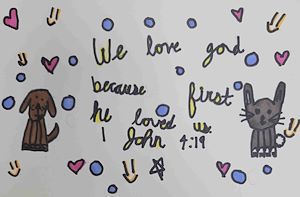 We love god
because first
he loved us.
1 John 4:19